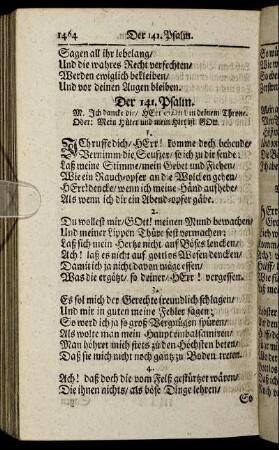 1464 Der 141. Psalm.
Sagen all ihr lebelang/
Und die wahres Recht verfechten/
Werden ewiglich bekleiben/
Und vor deinen Augen bleiben.
Der 141. Psalm.
M. Ich dancke dir/ HErr GOtt in deinem Throne/
Oder: Mein Hüter und mein Hirt ist GOtt.
1.
Ich ruffe dich/ HErr! komme doch behende/
Vernimm die Seuffzer/ so ich zu dir sende:
Laß meine Stimme/ mein Gebet und Flehen/
Wie ein Rauchopfer an die Wolcken gehen/
HErr! dencke/ wenn ich meine Hände aufhebe/
Als wenn ich dir ein Abendopfer gäbe.
2.
Du wollest mir/ GOtt! meinen Mund bewachen/
Und meiner Lippen Thüre fest vermachen:
Laß sich mein Hertze nicht auf Böses lencken/
Ach! laß es nicht auf gottlos Wesen dencken/
Damit ich ja nicht davon möge essen/
Was die ergötzt/ so deiner/ HErr! vergessen.
3.
Es sol mich der Gerechte freundlich schlagen/
Und mir in guten meine Fehler sagen;
So werd ich ja so groß Vergnügen spüren/
Als wolte man mein Haupt einbalsamiren/
Man höret mich stets zu den Höchsten beten/
Daß sie mich nicht noch gantz zu Boden treten.
4.
Ach! daß doch die vom Felß gestürtzet wären/
Die ihnen nichts/ als böse Dinge lehren/
So